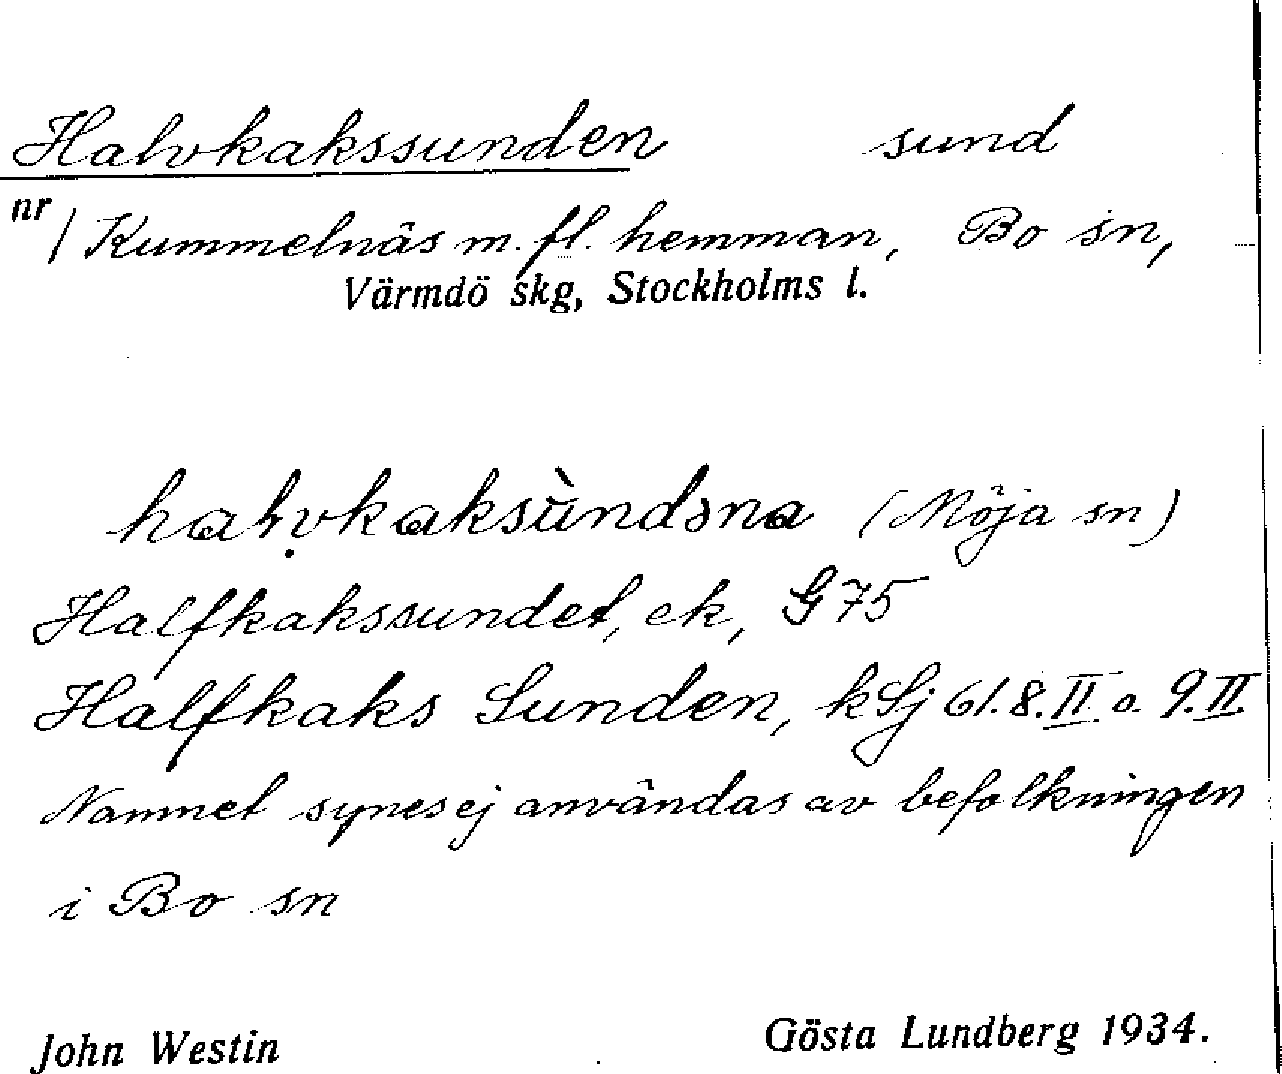 Halvkakssunden sund
nr / Kummelnäs m. fl. hemman, Bo sn,
Värmdö skg, Stockholms l.
(Möja sn)
Halfkakssundet, ek, G 75
Halfkaks Sunden, kSj 61.8.II o 9.II.
Namnet synes ej användas av befolkningen
i Bo sn
John Westin Gösta Lundberg 1934.